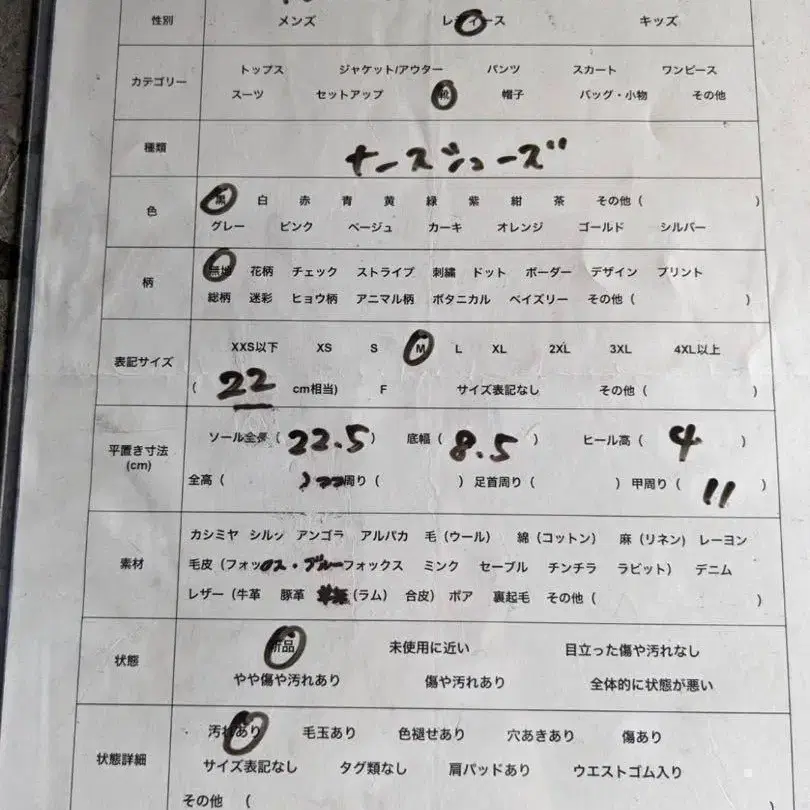 性別 メンズ レディース キッズ
カテゴリー トップス ジャケット/アウター パンツ スカート ワンピース
スーツ セットアップ 靴 帽子 バッグ・小物 その他
種類 ナースシューズ
色 黒 白 赤 青 黄 緑 紫 紺 茶 その他 ( )
グレー ピンク ベージュ カーキ オレンジ ゴールド シルバー
柄 無地 花柄 チェック ストライプ 刺繍 ドット ボーダー デザイン プリント
総柄 迷彩 ヒョウ柄 アニマル柄 ボタニカル ペイズリー その他 ( )
表記サイズ XXS以下 XS S M L XL 2XL 3XL 4XL以上
( 22 cm相当) F サイズ表記なし その他 ( )
平置き寸法 (cm) ソール全長 ( 22.5 ) 底幅 ( 8.5 ) ヒール高 ( 4 )
全高 ( ) 周り ( ) 足首周り ( ) 甲周り ( 11 )
素材 カシミヤ シルク アンゴラ アルパカ 毛 (ウール) 綿 (コットン) 麻 (リネン) レーヨン
毛皮 (フォックス・ブルーフォックス ミンク セーブル チンチラ ラビット) デニム
レザー (牛革 豚革 (ラム) 合皮) ボア 裏起毛 その他 ( )
状態 新品 未使用に近い 目立った傷や汚れなし
やや傷や汚れあり 傷や汚れあり 全体的に状態が悪い
状態詳細 汚れあり 毛玉あり 色褪せあり 穴あきあり 傷あり
サイズ表記なし タグ類なし 肩パッドあり ウエストゴム入り
その他 ( )